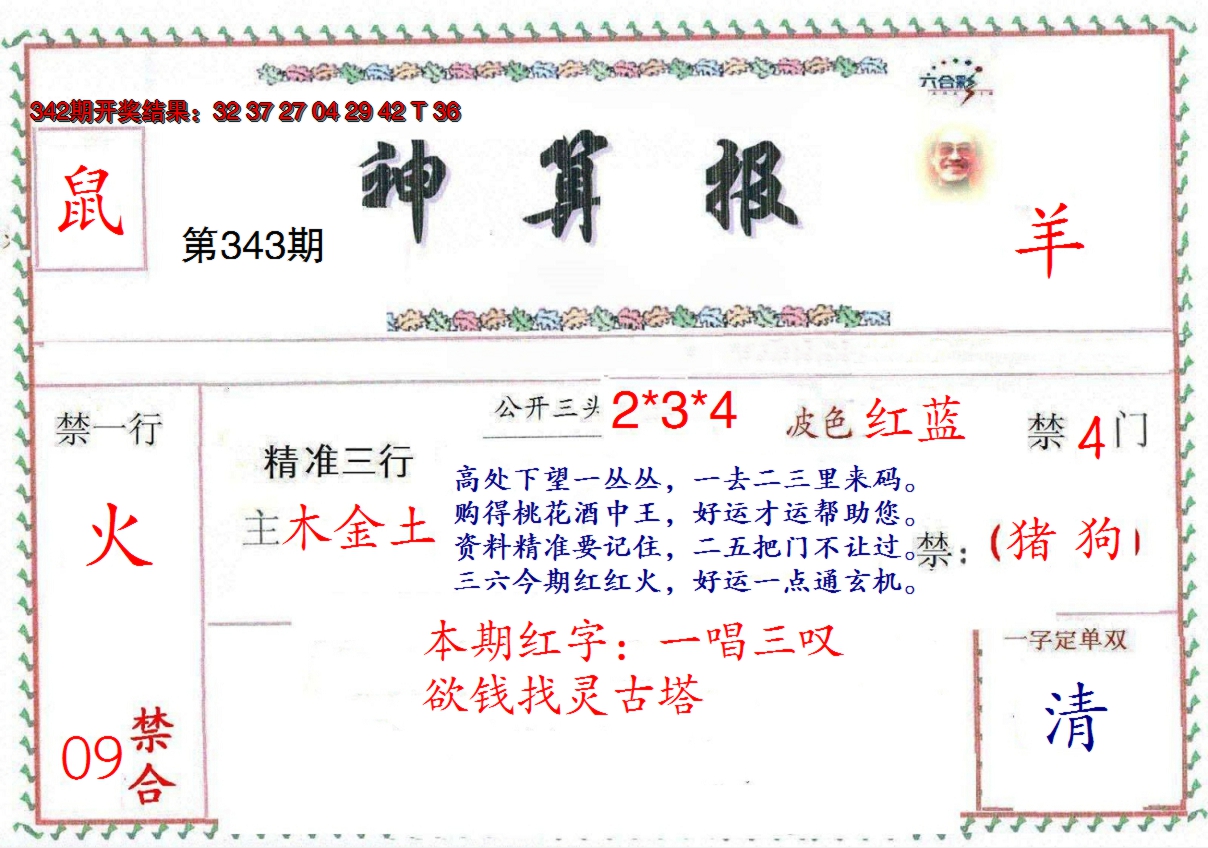 六合彩
342期开奖结果：32 37 27 04 29 42 T 36
鼠
第343期
神算报
羊
禁一行
火
09
禁合
精准三行
主木金土
公开三头 2*3*4
波色 红蓝
禁4门
高处下望一丛丛，一去二三里来码。
购得桃花酒中王，好运才运帮助您。
资料精准要记住，二五把门不让过。
三六今期红红火，好运一点通玄机。
禁：（猪 狗）
本期红字：一唱三叹
欲钱找灵古塔
一字定单双
清